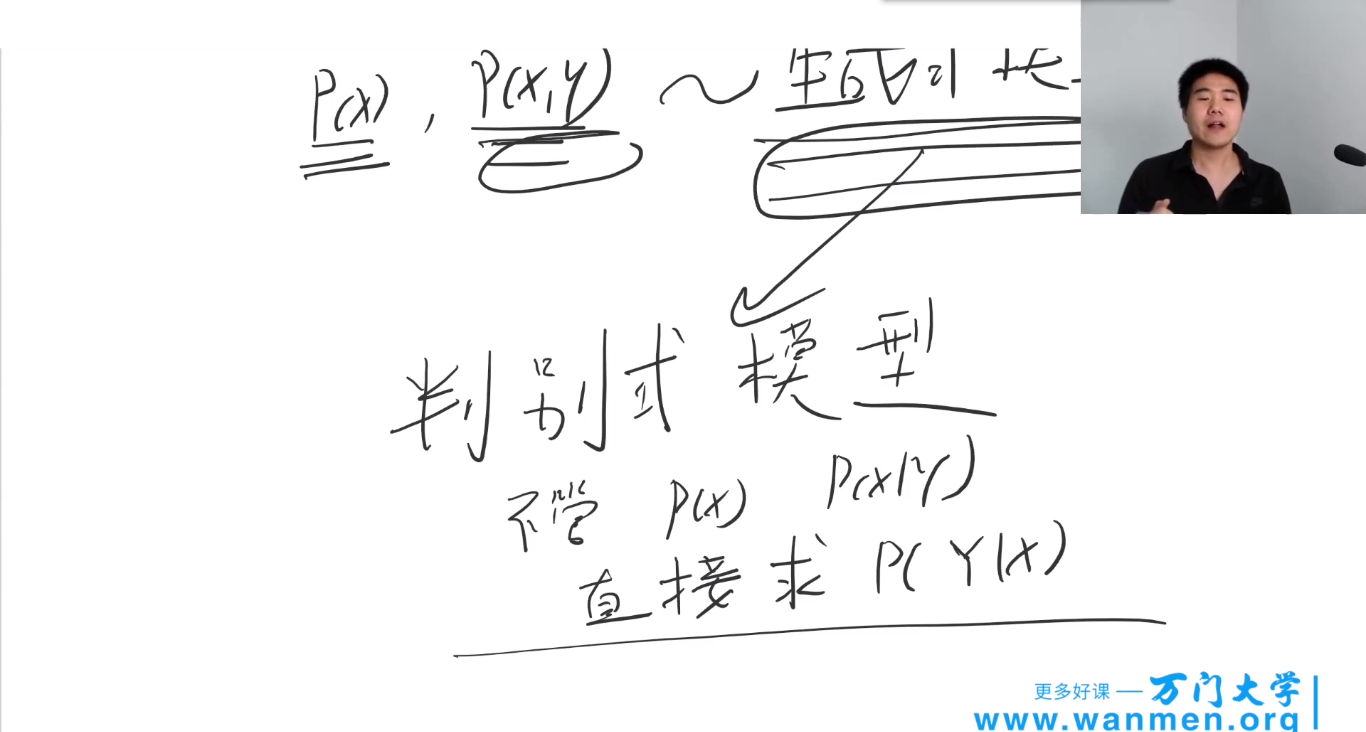 P(X), P(X,Y) ~ 生成式
判别式模型
不管 P(X) P(X|Y)
直接求 P(Y|X)
更多好课 — 万门大学
www.wanmen.org